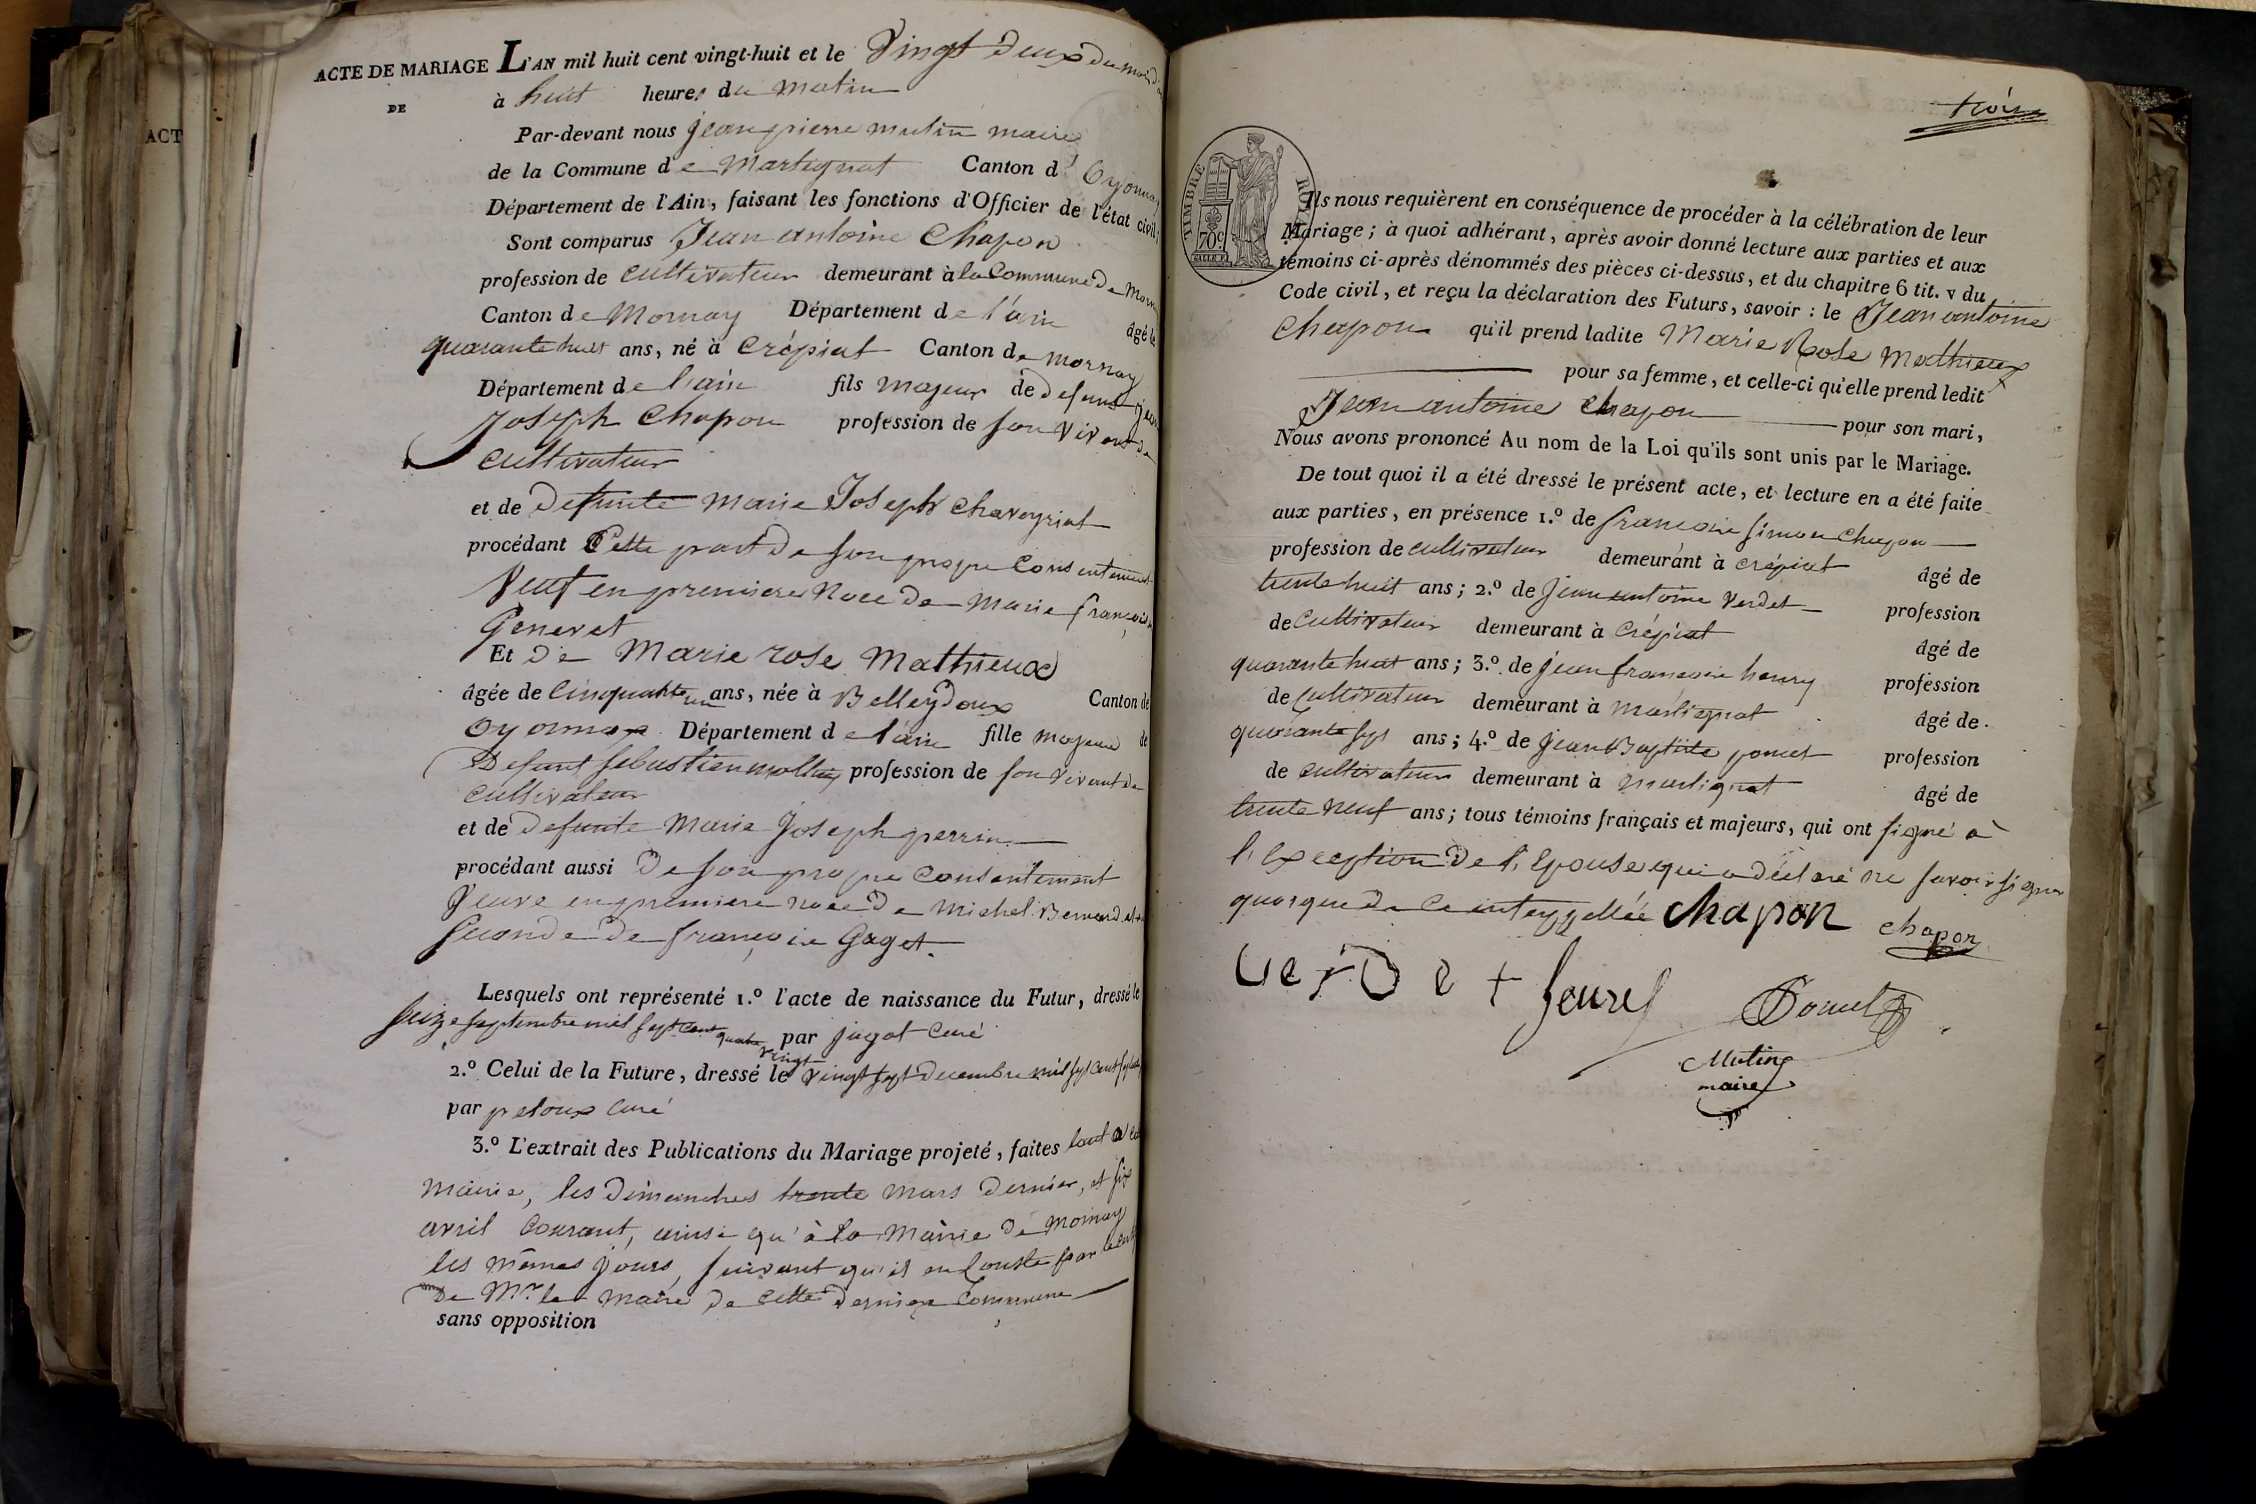 ACT
ACTE DE MARIAGE L'AN mil huit cent vingt-huit et le Vingt Deux du mois
DE
à huit heures du matin
Par-devant nous jean pierre mutin maire
de la Commune de Martignat Canton d'Oyonnax
Département de l'Ain, faisant les fonctions d'Officier de l'état civil,
Sont comparus Jean antoine Chapon
profession de cultivateur demeurant à la Commune De Mornay
Canton de Mornay Département de l'ain âgé de
quarante huit ans, né à Crépiat Canton de mornay
Département de l'ain fils majeur de Defunt jean
Joseph Chapon profession de son vivant de
cultivateur
et de Defunte Marie Joseph Chaveyriat
procédant Cette part De son propre Consentement
Veuf en premiere Noce De Marie françoise
Genevet
Et De Marie rose Mathieux
âgée de Cinquante un ans, née à Belleydoux Canton de
Oyonnax Département de l'ain fille majeure de
Defunt sebastien mathieux profession de son vivant de
cultivateur
et de Defunte Marie Joseph perrin
procédant aussi De son propre Consentement
Veuve en premiere noce De Michel Bernard et en
Seconde De françois Gaget.
Lesquels ont représenté 1.º l'acte de naissance du Futur, dressé le
seize septembre mil sept cent quatre vingt par jugot Curé
2.º Celui de la Future, dressé le Vingt sept Decembre mil sept cent
par peloux Curé
3.º L'extrait des Publications du Mariage projeté, faites tant a la
Mairie, les Dimanches trente Mars Dernier, et six
avril Courant, ainsi qu'à la Mairie De Mornay
les mêmes jours, suivant qu'il en Conste par
De Mr. le Maire De Cette Derniere Commune
sans opposition
trois
TIMBRE ROYAL
70 c
Ils nous requièrent en conséquence de procéder à la célébration de leur
Mariage; à quoi adhérant, après avoir donné lecture aux parties et aux
témoins ci-après dénommés des pièces ci-dessus, et du chapitre 6 tit. v du
Code civil, et reçu la déclaration des Futurs, savoir : le Jean antoine
Chapon qu'il prend ladite Marie Rose Mathieux
pour sa femme, et celle-ci qu'elle prend ledit
Jean antoine Chapon pour son mari,
Nous avons prononcé Au nom de la Loi qu'ils sont unis par le Mariage.
De tout quoi il a été dressé le présent acte, et lecture en a été faite
aux parties, en présence 1.º de francois simon Chapon
profession de cultivateur demeurant à crépiat âgé de
trente huit ans; 2.º de Jean antoine Verdet profession
de Cultivateur demeurant à Crépiat âgé de
quarante huit ans; 3.º de jean francois henry profession
de Cultivateur demeurant à Martignat âgé de
quarante sept ans; 4.º de jean Baptiste poncet profession
de cultivateur demeurant à Martignat âgé de
trente neuf ans; tous témoins français et majeurs, qui ont signé à
l'Exception De l'Epouse qui a déclaré ne savoir signer
quoique De Ce interppellée Chapon chapon
Verdet
Mutin
maire